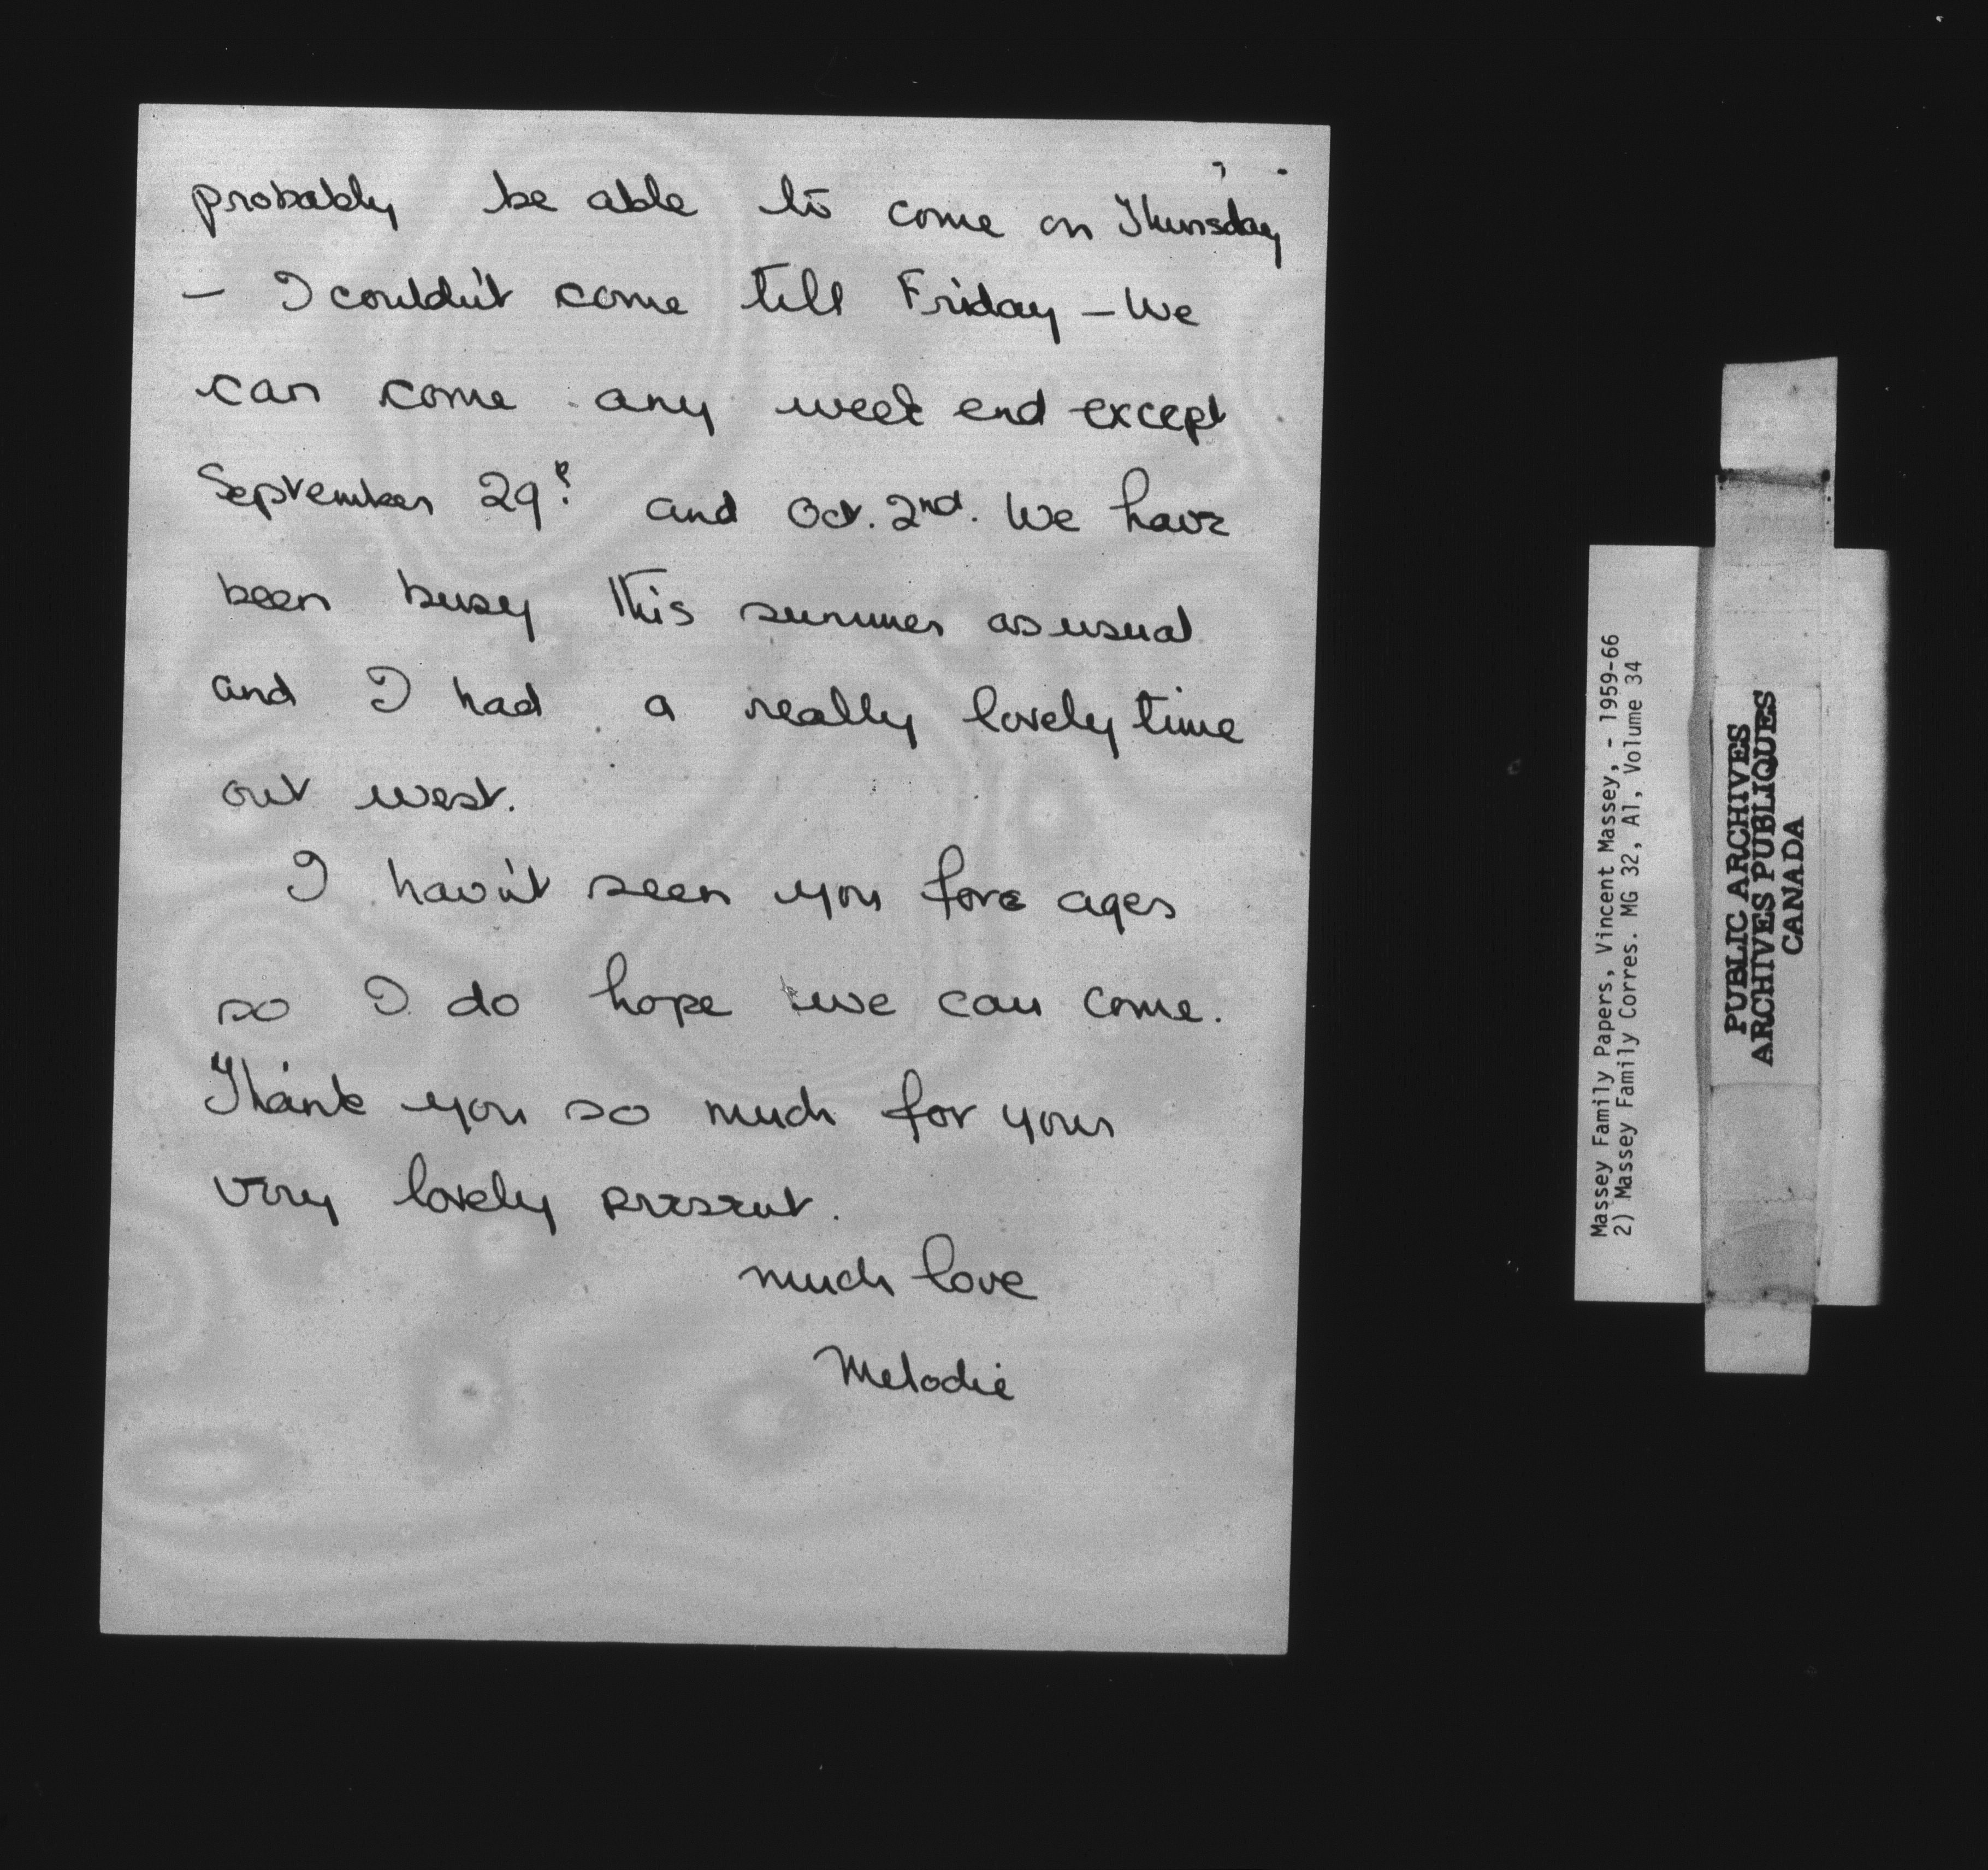 probably be able to come on Thursday
– I couldn't come till Friday – We
can come any week end except
September 29? and Oct. 2nd. We have
been busy this summer as usual
and I had a really lovely time
out west.
I hav'nt seen you for ages
so I do hope we can come.
Thank you so much for your
very lovely present.
much love
Melodie
Massey Family Papers, Vincent Massey, - 1959-66
2) Massey Family Corres. MG 32, A1, Volume 34
PUBLIC ARCHIVES
ARCHIVES PUBLIQUES
CANADA